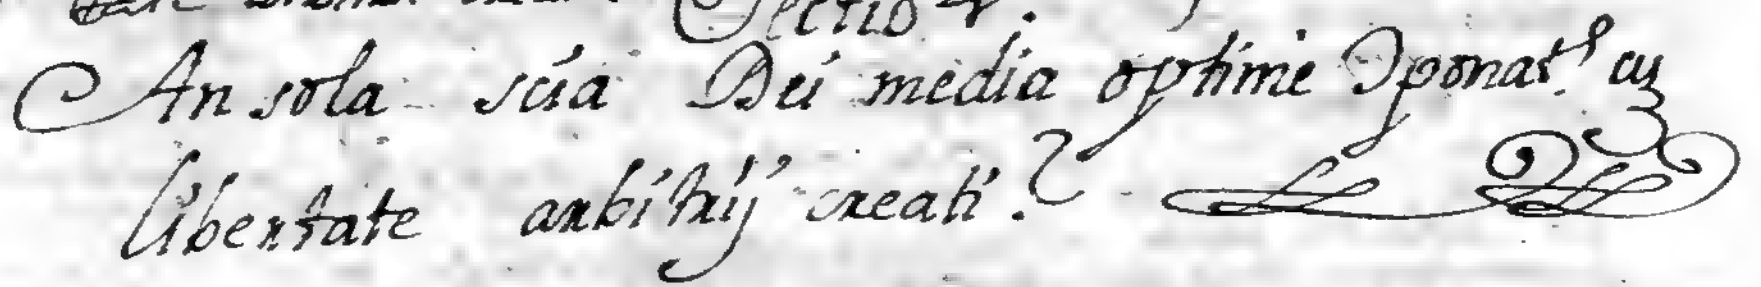 Sectio 4.
An sola scia Dei media optime Ɔponat.r cuȝ
libertate arbitrij creati?